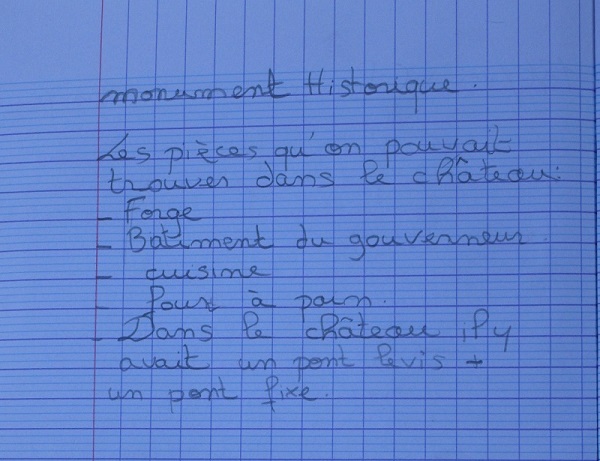 monument Historique.
Les pièces qu'on pouvait
trouver dans le château:
- Forge
- Bâtiment du gouverneur.
- cuisine
- four à pain.
- Dans le château il y
avait un pont levis +
un pont fixe.